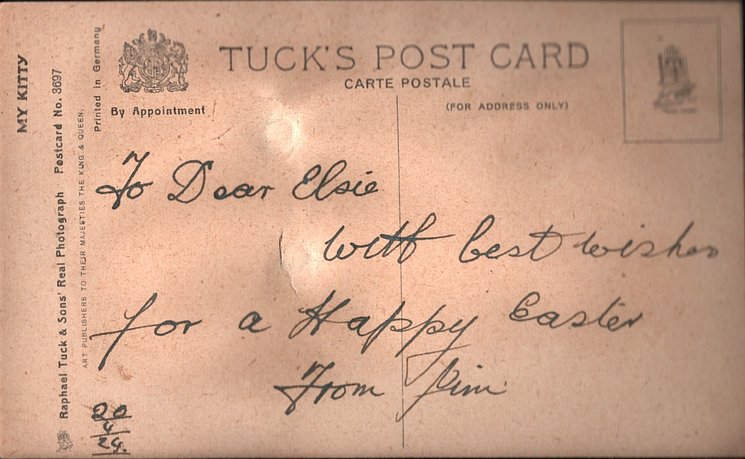 TUCK'S POST CARD
CARTE POSTALE
By Appointment
(FOR ADDRESS ONLY)
MY KITTY
Raphael Tuck & Sons' Real Photograph Postcard No. 3697
ART PUBLISHERS TO THEIR MAJESTIES THE KING & QUEEN.
Printed in Germany
To Dear Elsie
with best wishes
for a Happy Easter
From Jim
20
4
24.